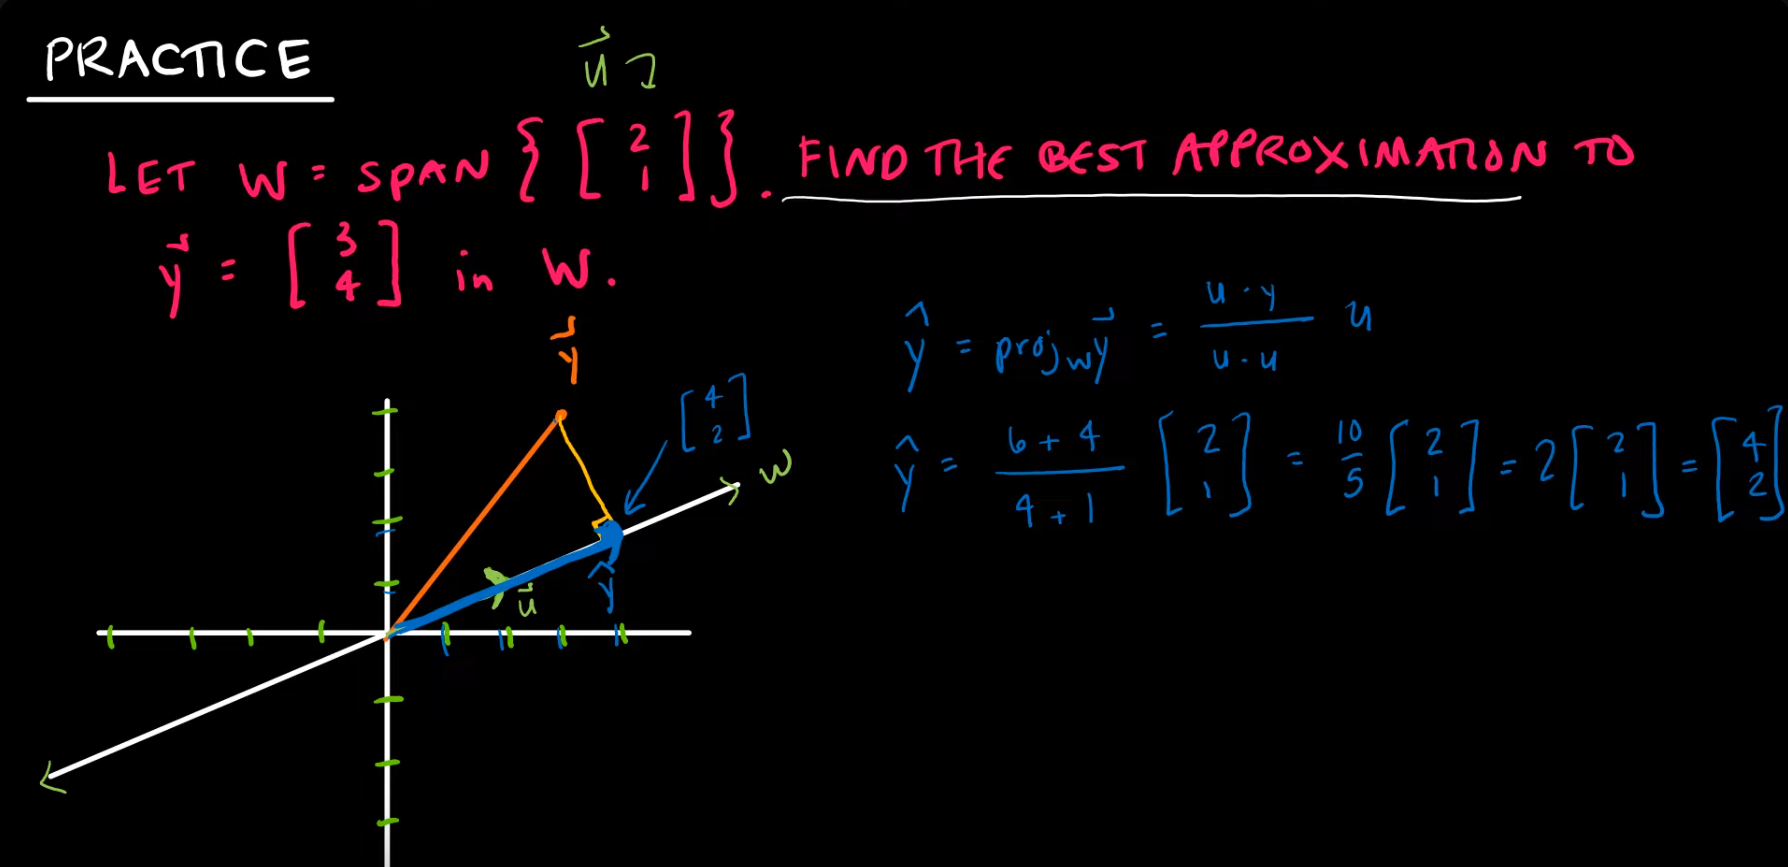 PRACTICE
u⃗
LET W = SPAN { [ 2 1 ] }. FIND THE BEST APPROXIMATION TO
y⃗ = [ 3 4 ] in W.
ŷ = proj_W y⃗ = u · y / u · u u
ŷ = 6 + 4 / 4 + 1 [ 2 1 ] = 10/5 [ 2 1 ] = 2 [ 2 1 ] = [ 4 2 ]
y⃗
[ 4 2 ]
W
u⃗
ŷ